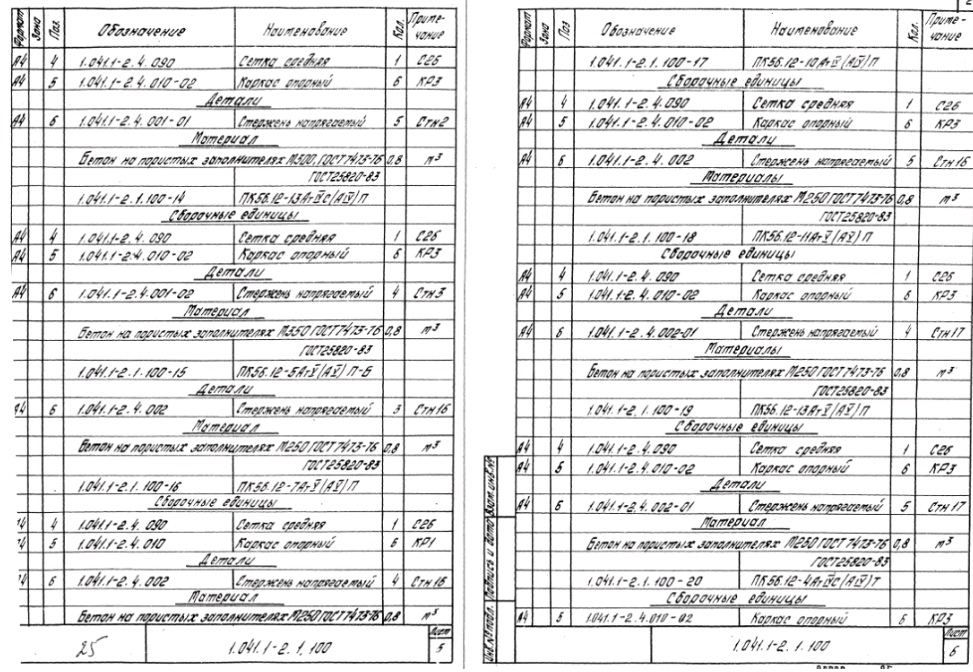 Формат Зона Поз. Обозначение Наименование Кол. Приме-чание
А4 4 1.041.1-2.4.090 Сетка средняя 1 С26
А4 5 1.041.1-2.4.010-02 Каркас опорный 6 КР3
Детали
А4 6 1.041.1-2.4.001-01 Стержень напрягаемый 5 Стн2
Материал
Бетон на пористых заполнителях М500, ГОСТ7473-76 0,8 м³
ГОСТ25820-83
1.041.1-2.1.100-14 ПК56.12-13АтIVС(АIV)П
Сборочные единицы
А4 4 1.041.1-2.4.090 Сетка средняя 1 С26
А4 5 1.041.1-2.4.010-02 Каркас опорный 6 КР3
Детали
А4 6 1.041.1-2.4.001-02 Стержень напрягаемый 4 Стн3
Материал
Бетон на пористых заполнителях М350 ГОСТ7473-76 0,8 м³
ГОСТ25820-83
1.041.1-2.1.100-15 ПК56.12-5АтV(АV)П-Б
Детали
А4 6 1.041.1-2.4.002 Стержень напрягаемый 3 Стн16
Материал
Бетон на пористых заполнителях М250 ГОСТ7473-76 0,8 м³
ГОСТ25820-83
1.041.1-2.1.100-16 ПК56.12-7АтV(АV)П
Сборочные единицы
А4 4 1.041.1-2.4.090 Сетка средняя 1 С26
А4 5 1.041.1-2.4.010 Каркас опорный 6 КР1
Детали
А4 6 1.041.1-2.4.002 Стержень напрягаемый 4 Стн16
Материал
Бетон на пористых заполнителях М250 ГОСТ7473-76 0,8 м³
25 1.041.1-2.1.100 Лист
5
Формат Зона Поз Обозначение Наименование Кол. Приме-чание
1.041.1-2.1.100-17
Сборочные единицы
А4 4 1.041.1-2.4.090 Сетка средняя 1 С26
А4 5 1.041.1-2.4.010-02 Каркас опорный 6 КР3
Детали
А4 6 1.041.1-2.4.002 Стержень напрягаемый 5 Стн16
Материалы
Бетон на пористых заполнителях М250 ГОСТ7473-76 0,8 м³
ГОСТ25820-83
1.041.1-2.1.100-18 ПК56.12-11АтV(АV)П
Сборочные единицы
А4 4 1.041.1-2.4.090 Сетка средняя 1 С26
А4 5 1.041.1-2.4.010-02 Каркас опорный 6 КР3
Детали
А4 6 1.041.1-2.4.002-01 Стержень напрягаемый 4 Стн17
Материалы
Бетон на пористых заполнителях М250 ГОСТ7473-76 0,8 м³
ГОСТ25820-83
1.041.1-2.1.100-19 ПК56.12-13АтV(АV)П
Сборочные единицы
А4 4 1.041.1-2.4.090 Сетка средняя 1 С26
А4 5 1.041.1-2.4.010-02 Каркас опорный 6 КР3
Детали
А4 6 1.041.1-2.4.002-01 Стержень напрягаемый 5 Стн17
Материал
Бетон на пористых заполнителях М250 ГОСТ7473-76 0,8 м³
ГОСТ25820-83
1.041.1-2.1.100-20 ПК56.12-4АтIVС(АIV)Т
Сборочные единицы
А4 5 1.041.1-2.4.010-02 Каркас опорный 6 КР3
Инв.№подл. Подпись и дата Взам.инв.№
1.041.1-2.1.100 Лист
6